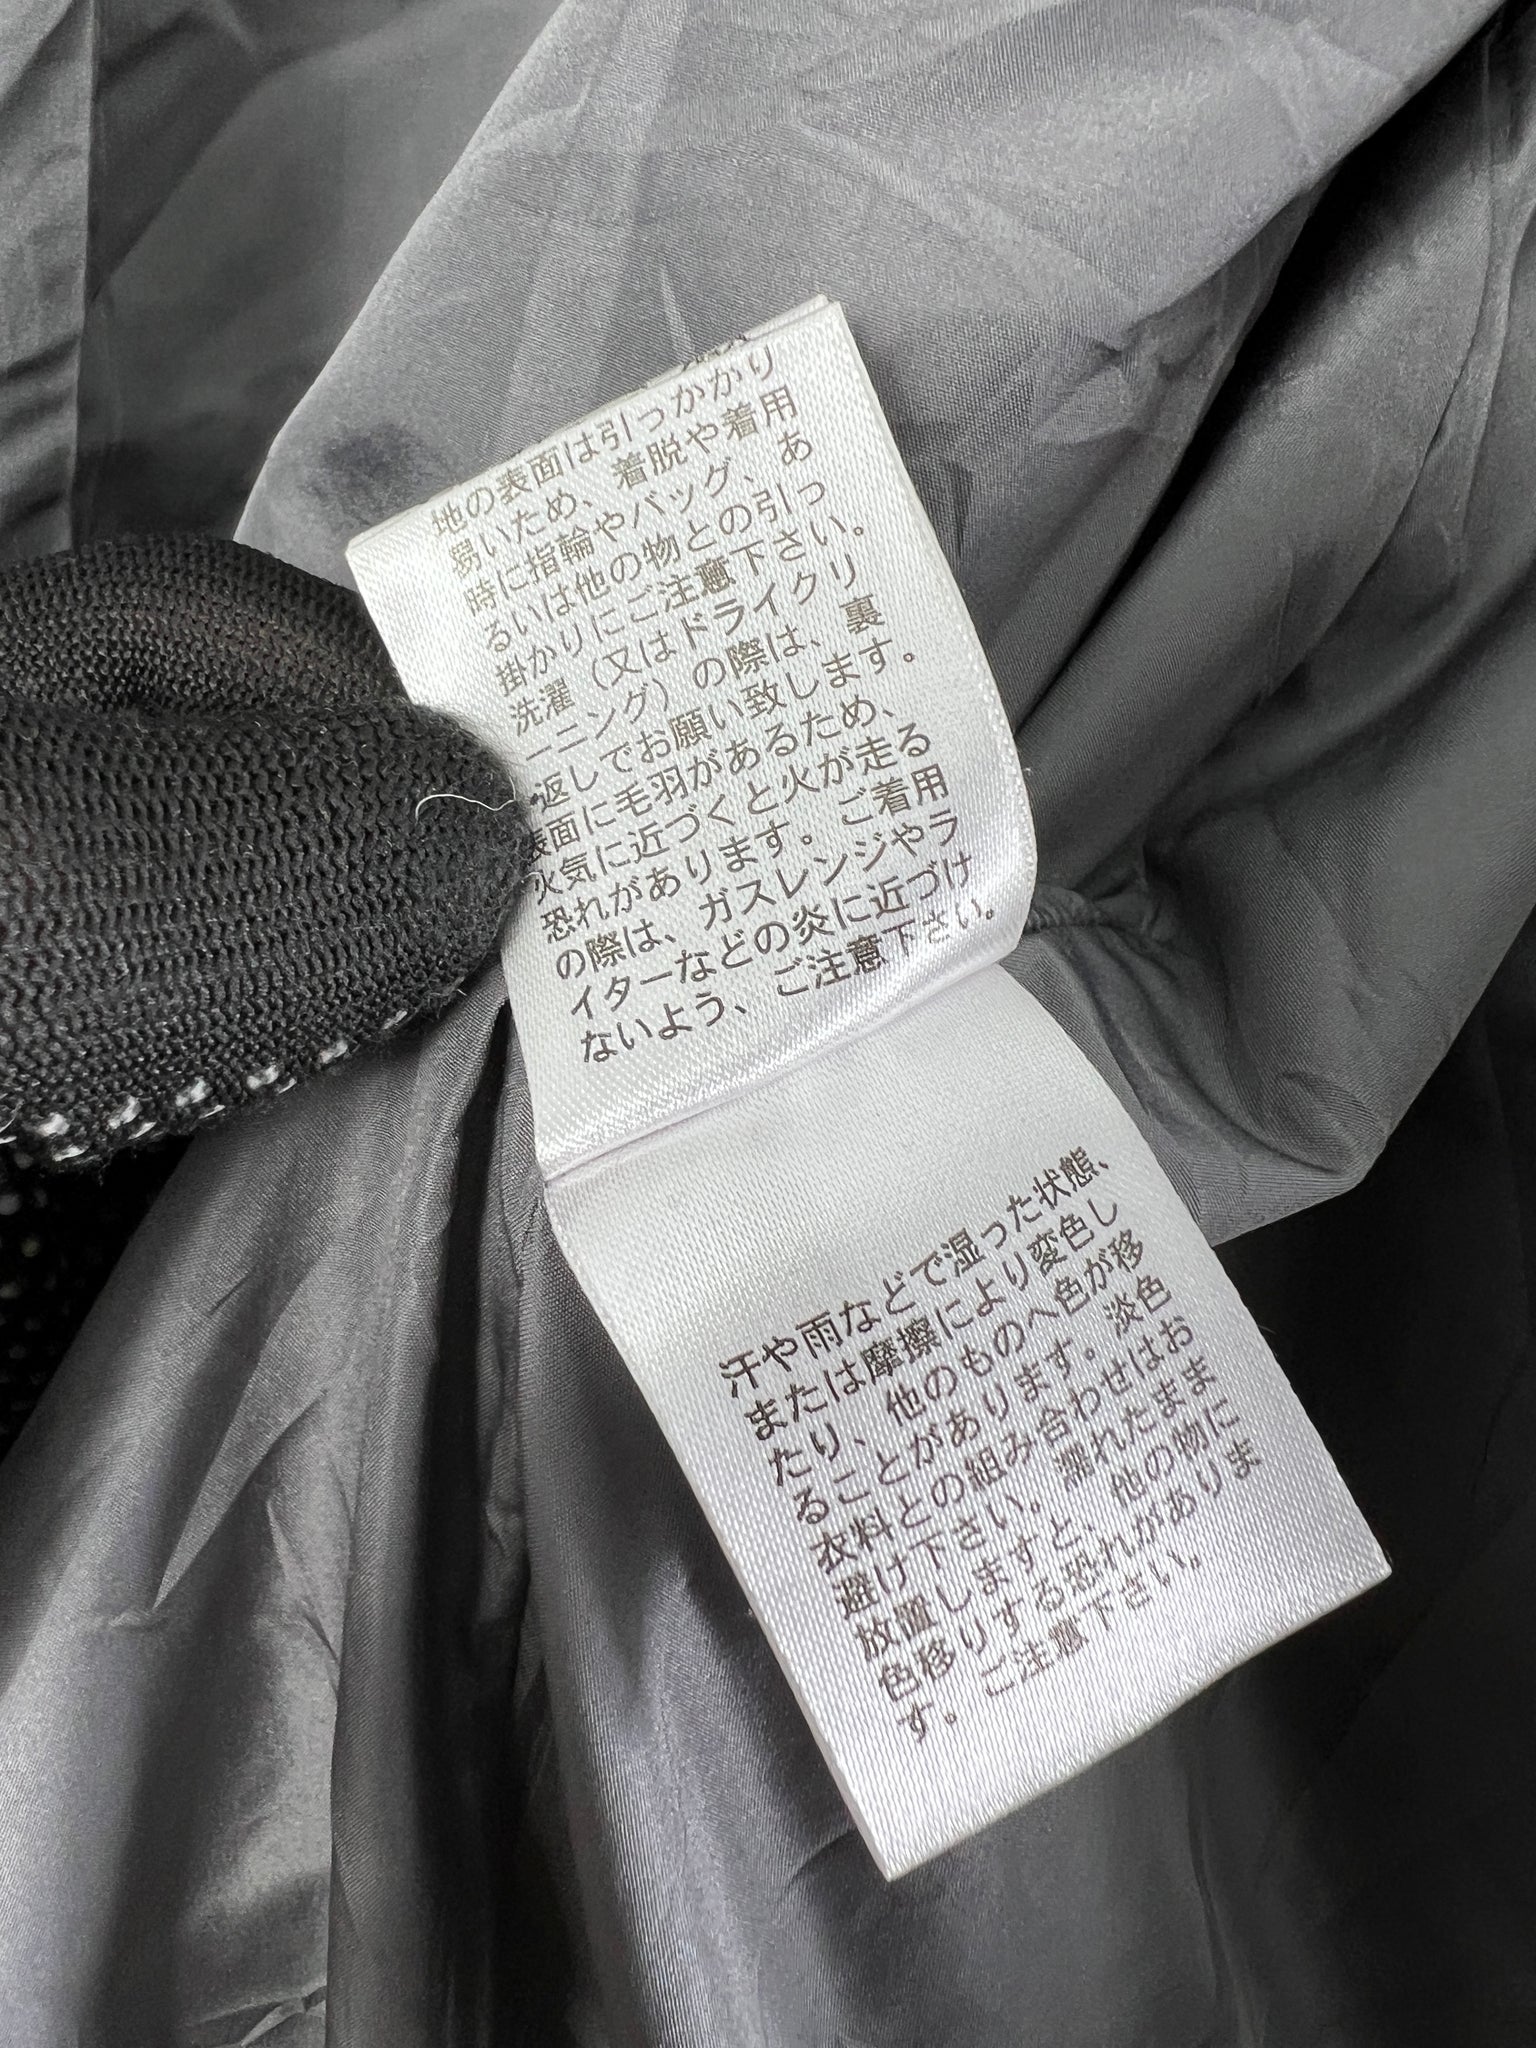 地の表面は引っかかり
易いため、着脱や着用
時に指輪やバッグ、あ
るいは他の物との引っ
掛かりにご注意下さい。
洗濯（又はドライクリ
ーニング）の際は、裏
返しでお願い致します。
表面に毛羽があるため、
火気に近づくと火が走る
恐れがあります。ご着用
の際は、ガスレンジやラ
イターなどの炎に近づけ
ないよう、ご注意下さい。
汗や雨などで湿った状態、
または摩擦により変色し
たり、他のものへ色が移
ることがあります。淡色
衣料との組み合わせはお
避け下さい。濡れたまま
放置しますと、他の物に
色移りする恐れがありま
す。ご注意下さい。